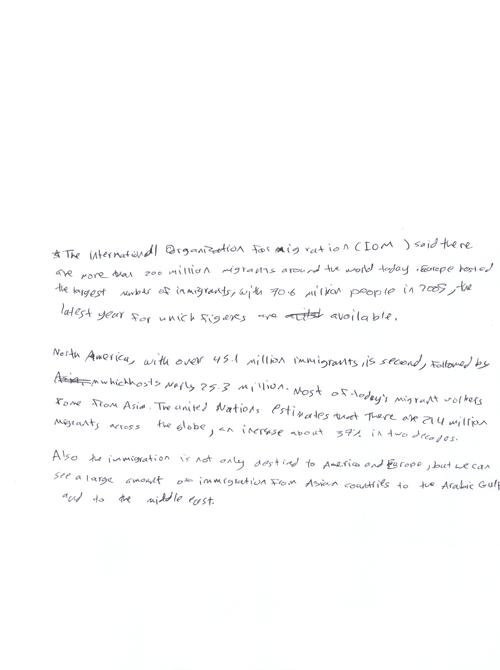 * The International Organization for migration (IOM ) said there
are more than 200 million migrants around the world today . Europe hosted
the largest number of immigrants, with 70.6 million people in 2005, the
latest year for which figures are available.
North America, with over 45.1 million immigrants, is second, followed by
Asia, which hosts nerly 25.3 million. Most of today's migrant workers
come from Asia. The united Nations estimates that There are 214 million
migrants across the globe, an increase about 37% in two decades.
Also the immigration is not only destined to America and Europe, but we can
see a large amount of immigration from Asian countries to the Arabic Gulf
and to the middle east.